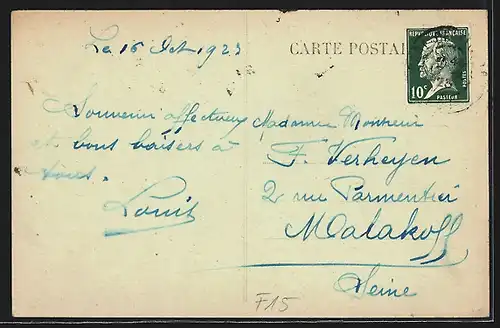 Le 16 Oct 1923
CARTE POSTALE
REPUBLIQUE FRANÇAISE
POSTES
10c
PASTEUR
Souvenir affectueux
et bons baisers à
tous.
Louis
Madame Monsieur
F. Verheyen
2 rue Parmentier
Malakoff
Seine
F15